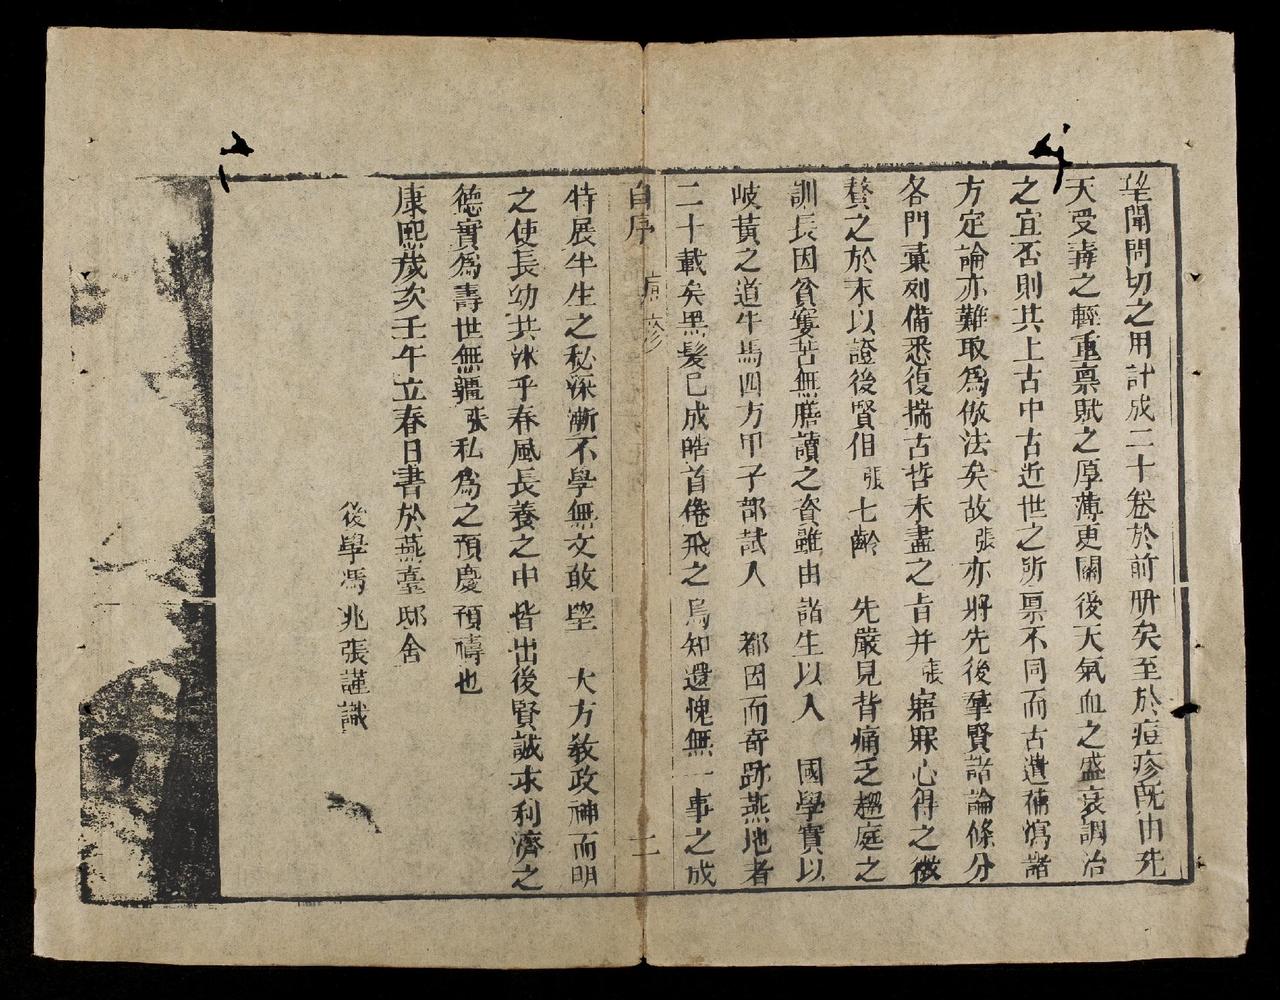 望聞問切之用計成二十卷於前册矣至於痘疹旣由先
天受毒之輕重禀賦之厚薄更關後天氣血之盛衰調治
之宜否則其上古中古近世之所禀不同而古遺補瀉諸
方定論亦難取爲倣法矣故張亦將先後羣賢諸論條分
各門彙列備悉復揣古哲未盡之旨并張寤寐心得之微
贅之於末以證後賢但張七齡 先嚴見背痛乏趨庭之
訓長因貧窶苦無膳讀之資雖由諸生以入 國學實以
岐黃之道牛馬四方甲子部試入 都因而寄跡燕地者
二十載矣黑髮已成皓首倦飛之鳥知還愧無一事之成
自序 痘疹 二
特展半生之秘深慚不學無文敢望 大方敎政神而明
之使長幼共沐乎春風長養之中皆出後賢誠求利濟之
德實爲壽世無疆張私爲之預慶預禱也
康熙歲次壬午立春日書於燕臺邸舍
後學馮兆張謹識